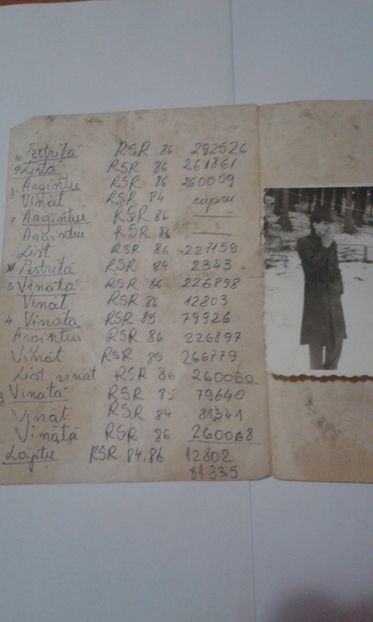 10 Pestriță RSR 86 292526
9 Listă RSR 86 261861
8 Argintiu RSR 86 260059
Vînăt RSR 84 capru
7 Argintiu RSR 86 —
Argintiu RSR 86 —
List RSR 86 227159
Pestriță RSR 84 2343
5 Vînătă RSR 86 226898
Vînăt RSR 86 12803
4 Vînătă RSR 85 79926
Argintiu RSR 86 226897
Vînăt RSR 85 266779
List vînăt RSR 86 260060
3 Vînătă RSR 85 79640
Vînăt RSR 84 81341
Vînătă RSR 86 260068
Lăptu RSR 84,86 12802
81335